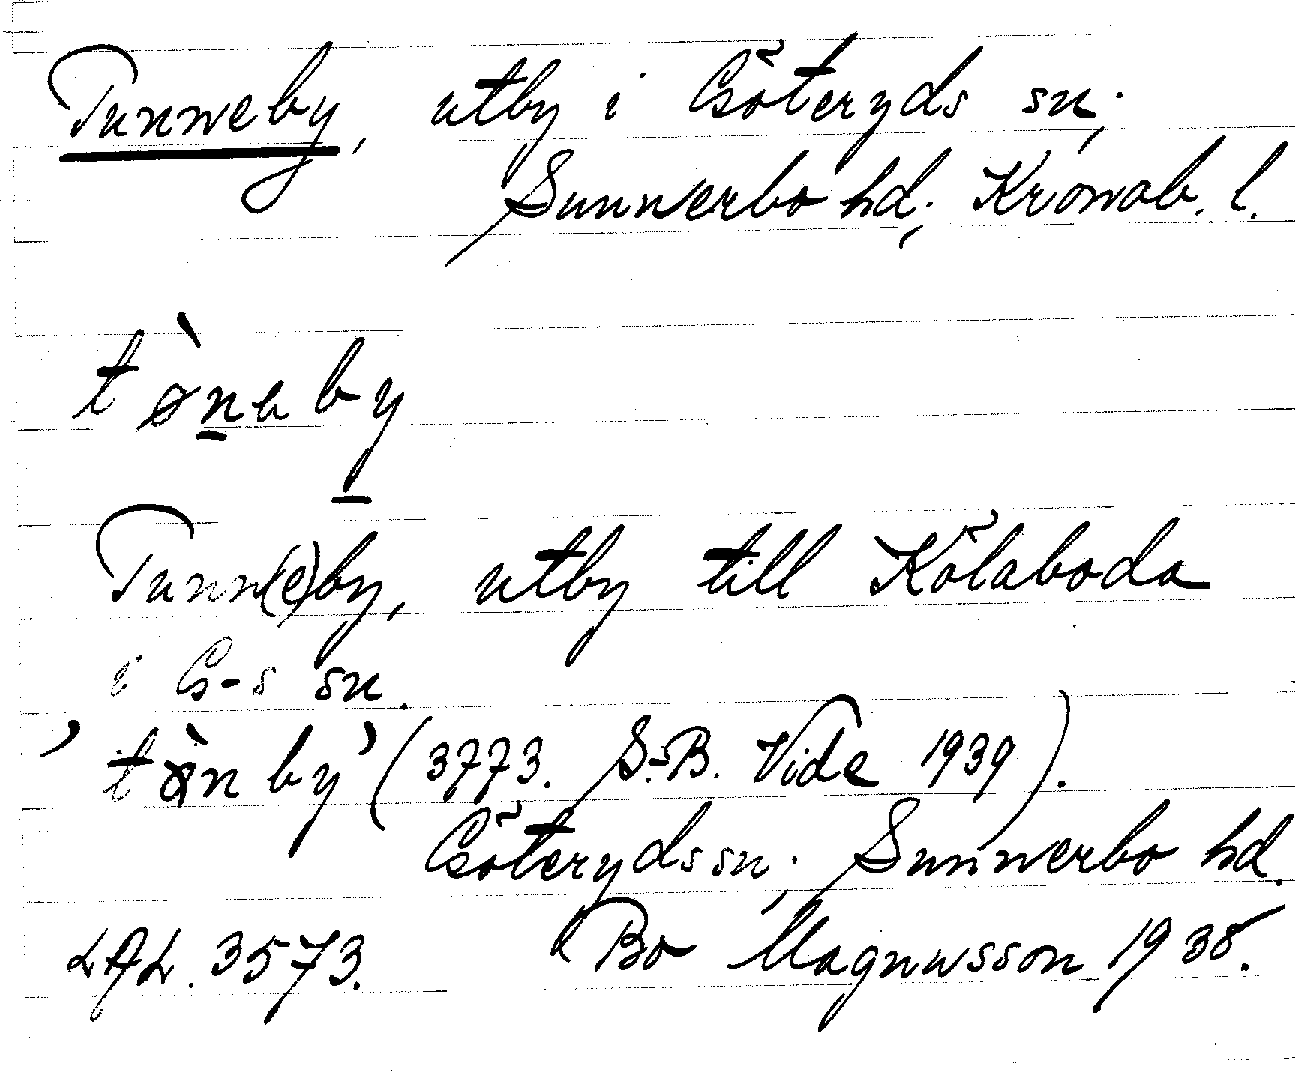 Tunneby, utby i Göteryds sn;
Sunnerbo hd; Kronob. l.
tònɐby
Tunn(e)by, utby till Kölaboda
i G-s sn.
'tònby' (3773. S-B. Vide 1939).
Göteryds sn; Sunnerbo hd.
LAL. 3573. Bo Magnusson 1938.